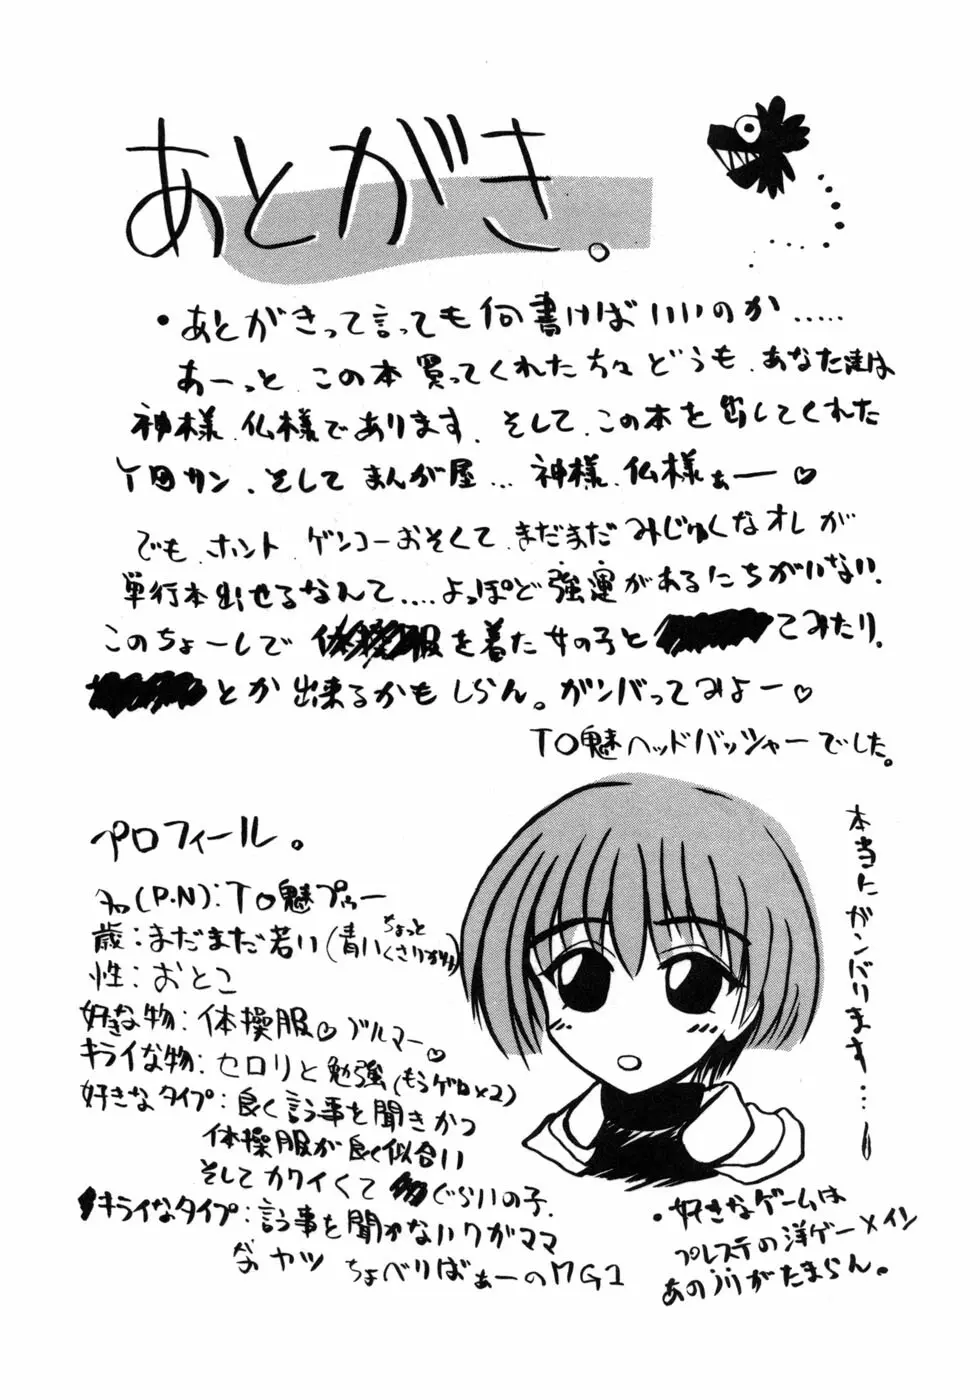 あとがき。
・あとがきって言っても何書けばいいのか.....
あーっと、この本買ってくれた方々どうも、あなた達は
神様、仏様であります、そして、この本を出してくれた
Y田サン、そしてまんが屋...神様、仏様ぁー♡
でも、ホント ゲンコーおそくて、まだまだみじゅくなオレが
単行本出せるなんて....よっぽど強運があるにちがいない、
このちょーしで体操服を着た女の子と てみたり、
とか出来るかもしらん。ガンバってみよー♡
TO魅ヘッドバッシャーでした。
本当にガンバリます...
プロフィール。
名(P.N):TO魅プゥー
歳:まだまだ若い(青いちょっとくさりかけ)
性:おとこ
好きな物:体操服♡ブルマー♡
キライな物:セロリと勉強(もうゲロ×2)
好きなタイプ:良く言う事を聞きかつ
体操服が良く似合い
そしてカワイくて ぐらいの子、
キライなタイプ:言う事を聞かないワガママ
なヤツ ちょべりばぁーのMG1
・好きなゲームは
プレステの洋ゲーメイン
あのノリがたまらん。